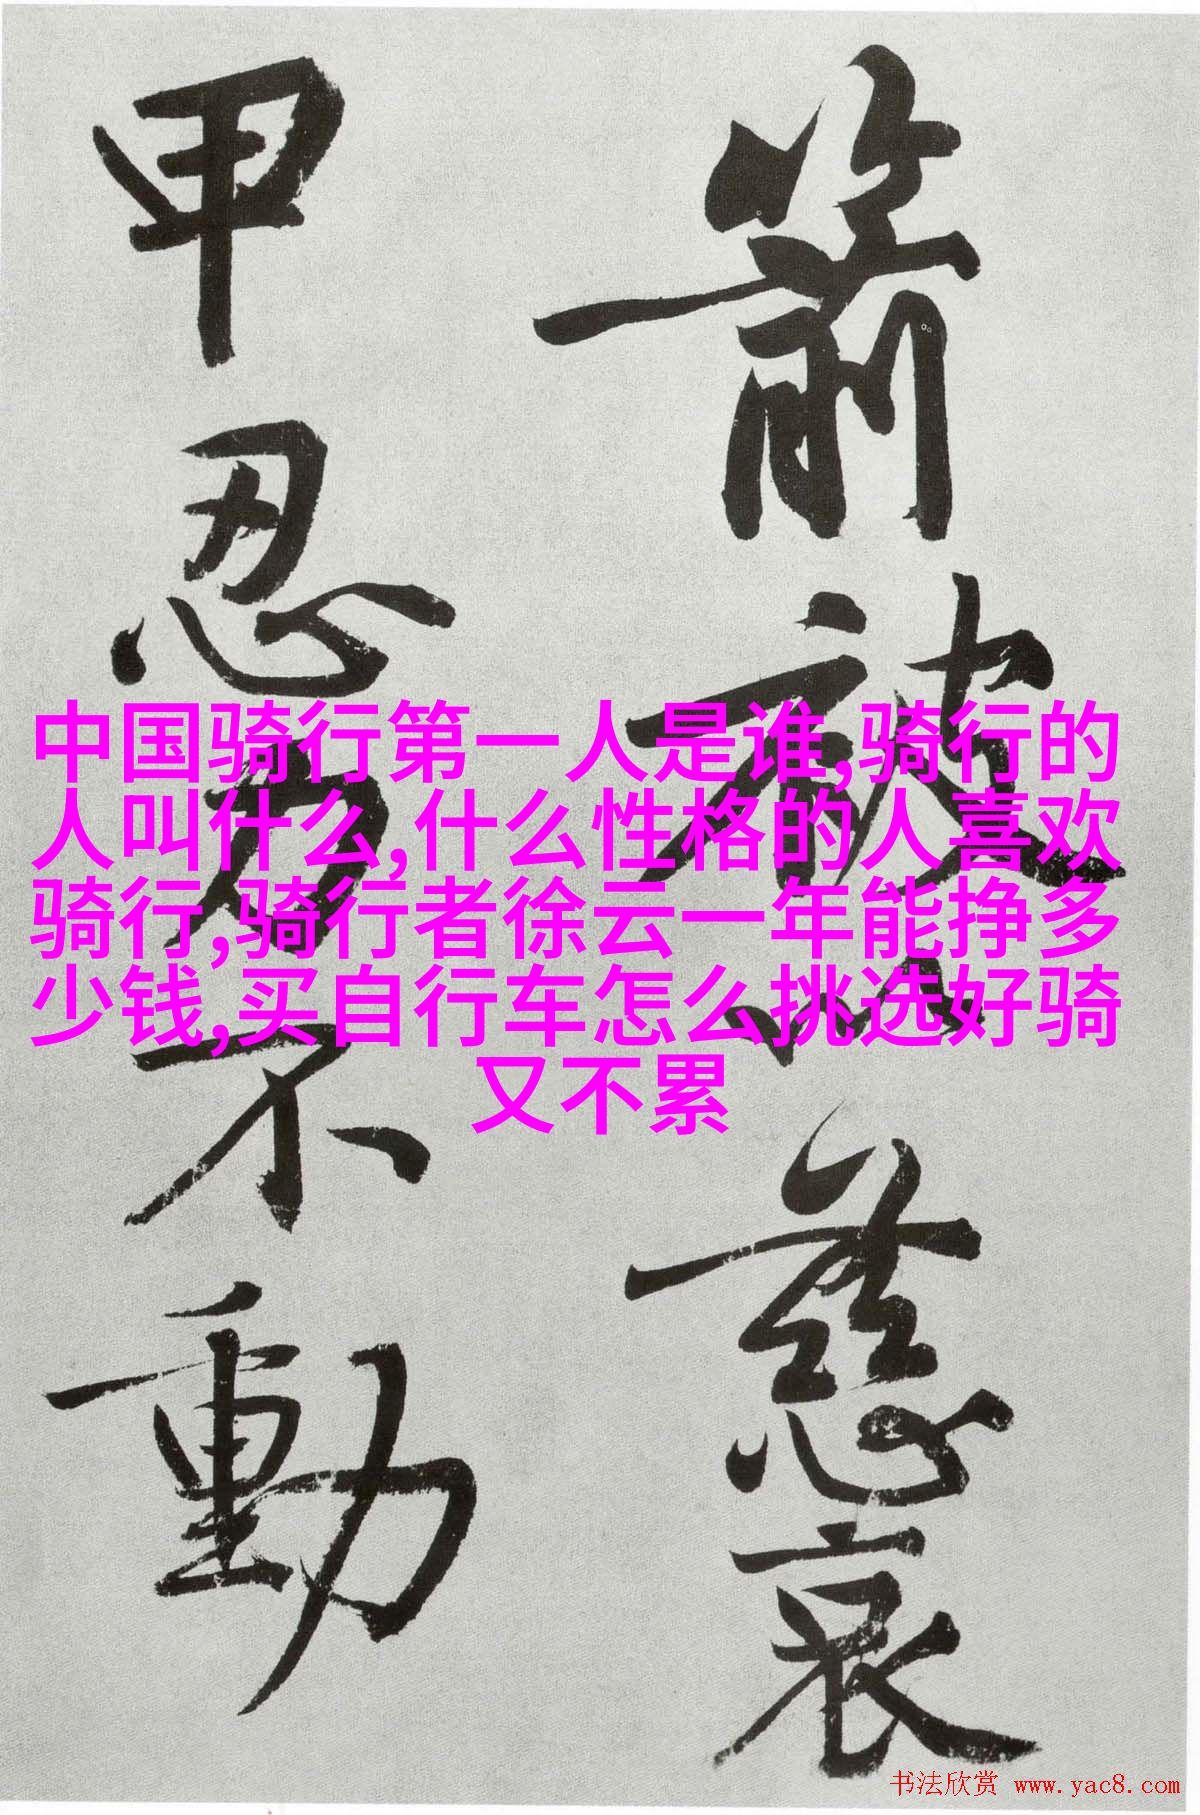 箭被以慈哀
甲忍力不動
中国骑行第一人是谁,骑行的
人叫什么,什么性格的人喜欢
骑行,骑行者徐云一年能挣多
少钱,买自行车怎么挑选好骑
又不累
书法欣赏 www.yac8.com